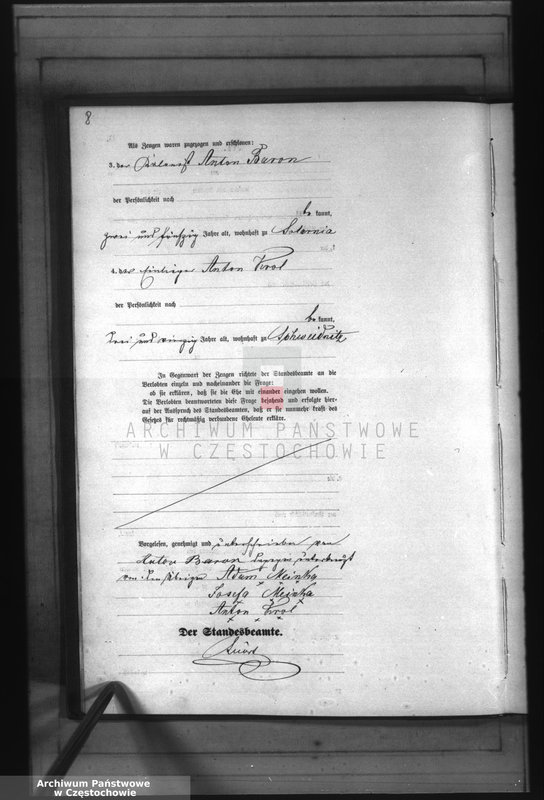 8
Als Zeugen waren zugezogen und erschienen:
3. der Anton Baron
der Persönlichkeit nach
be kannt,
zwei und fünfzig Jahre alt, wohnhaft zu Solarnia
4. der Einlieger Anton Krol
der Persönlichkeit nach
be kannt,
drei und vierzig Jahre alt, wohnhaft zu Schweidnitz
In Gegenwart der Zeugen richtete der Standesbeamte an die
Verlobten einzeln und nacheinander die Frage:
ob sie erklären, daß sie die Ehe mit einander eingehen wollen.
Die Verlobten beantworteten diese Frage bejahend und erfolgte hier-
auf der Ausspruch des Standesbeamten, daß er sie nunmehr kraft des
Gesetzes für rechtmäßig verbundene Eheleute erkläre.
ARCHIWUM PAŃSTWOWE
W CZĘSTOCHOWIE
Vorgelesen, genehmigt und unterschrieben von
Anton Baron
von den übrigen Adam Meinka
Josefa Meinka
Anton Krol
Der Standesbeamte.
Archiwum Państwowe
w Częstochowie